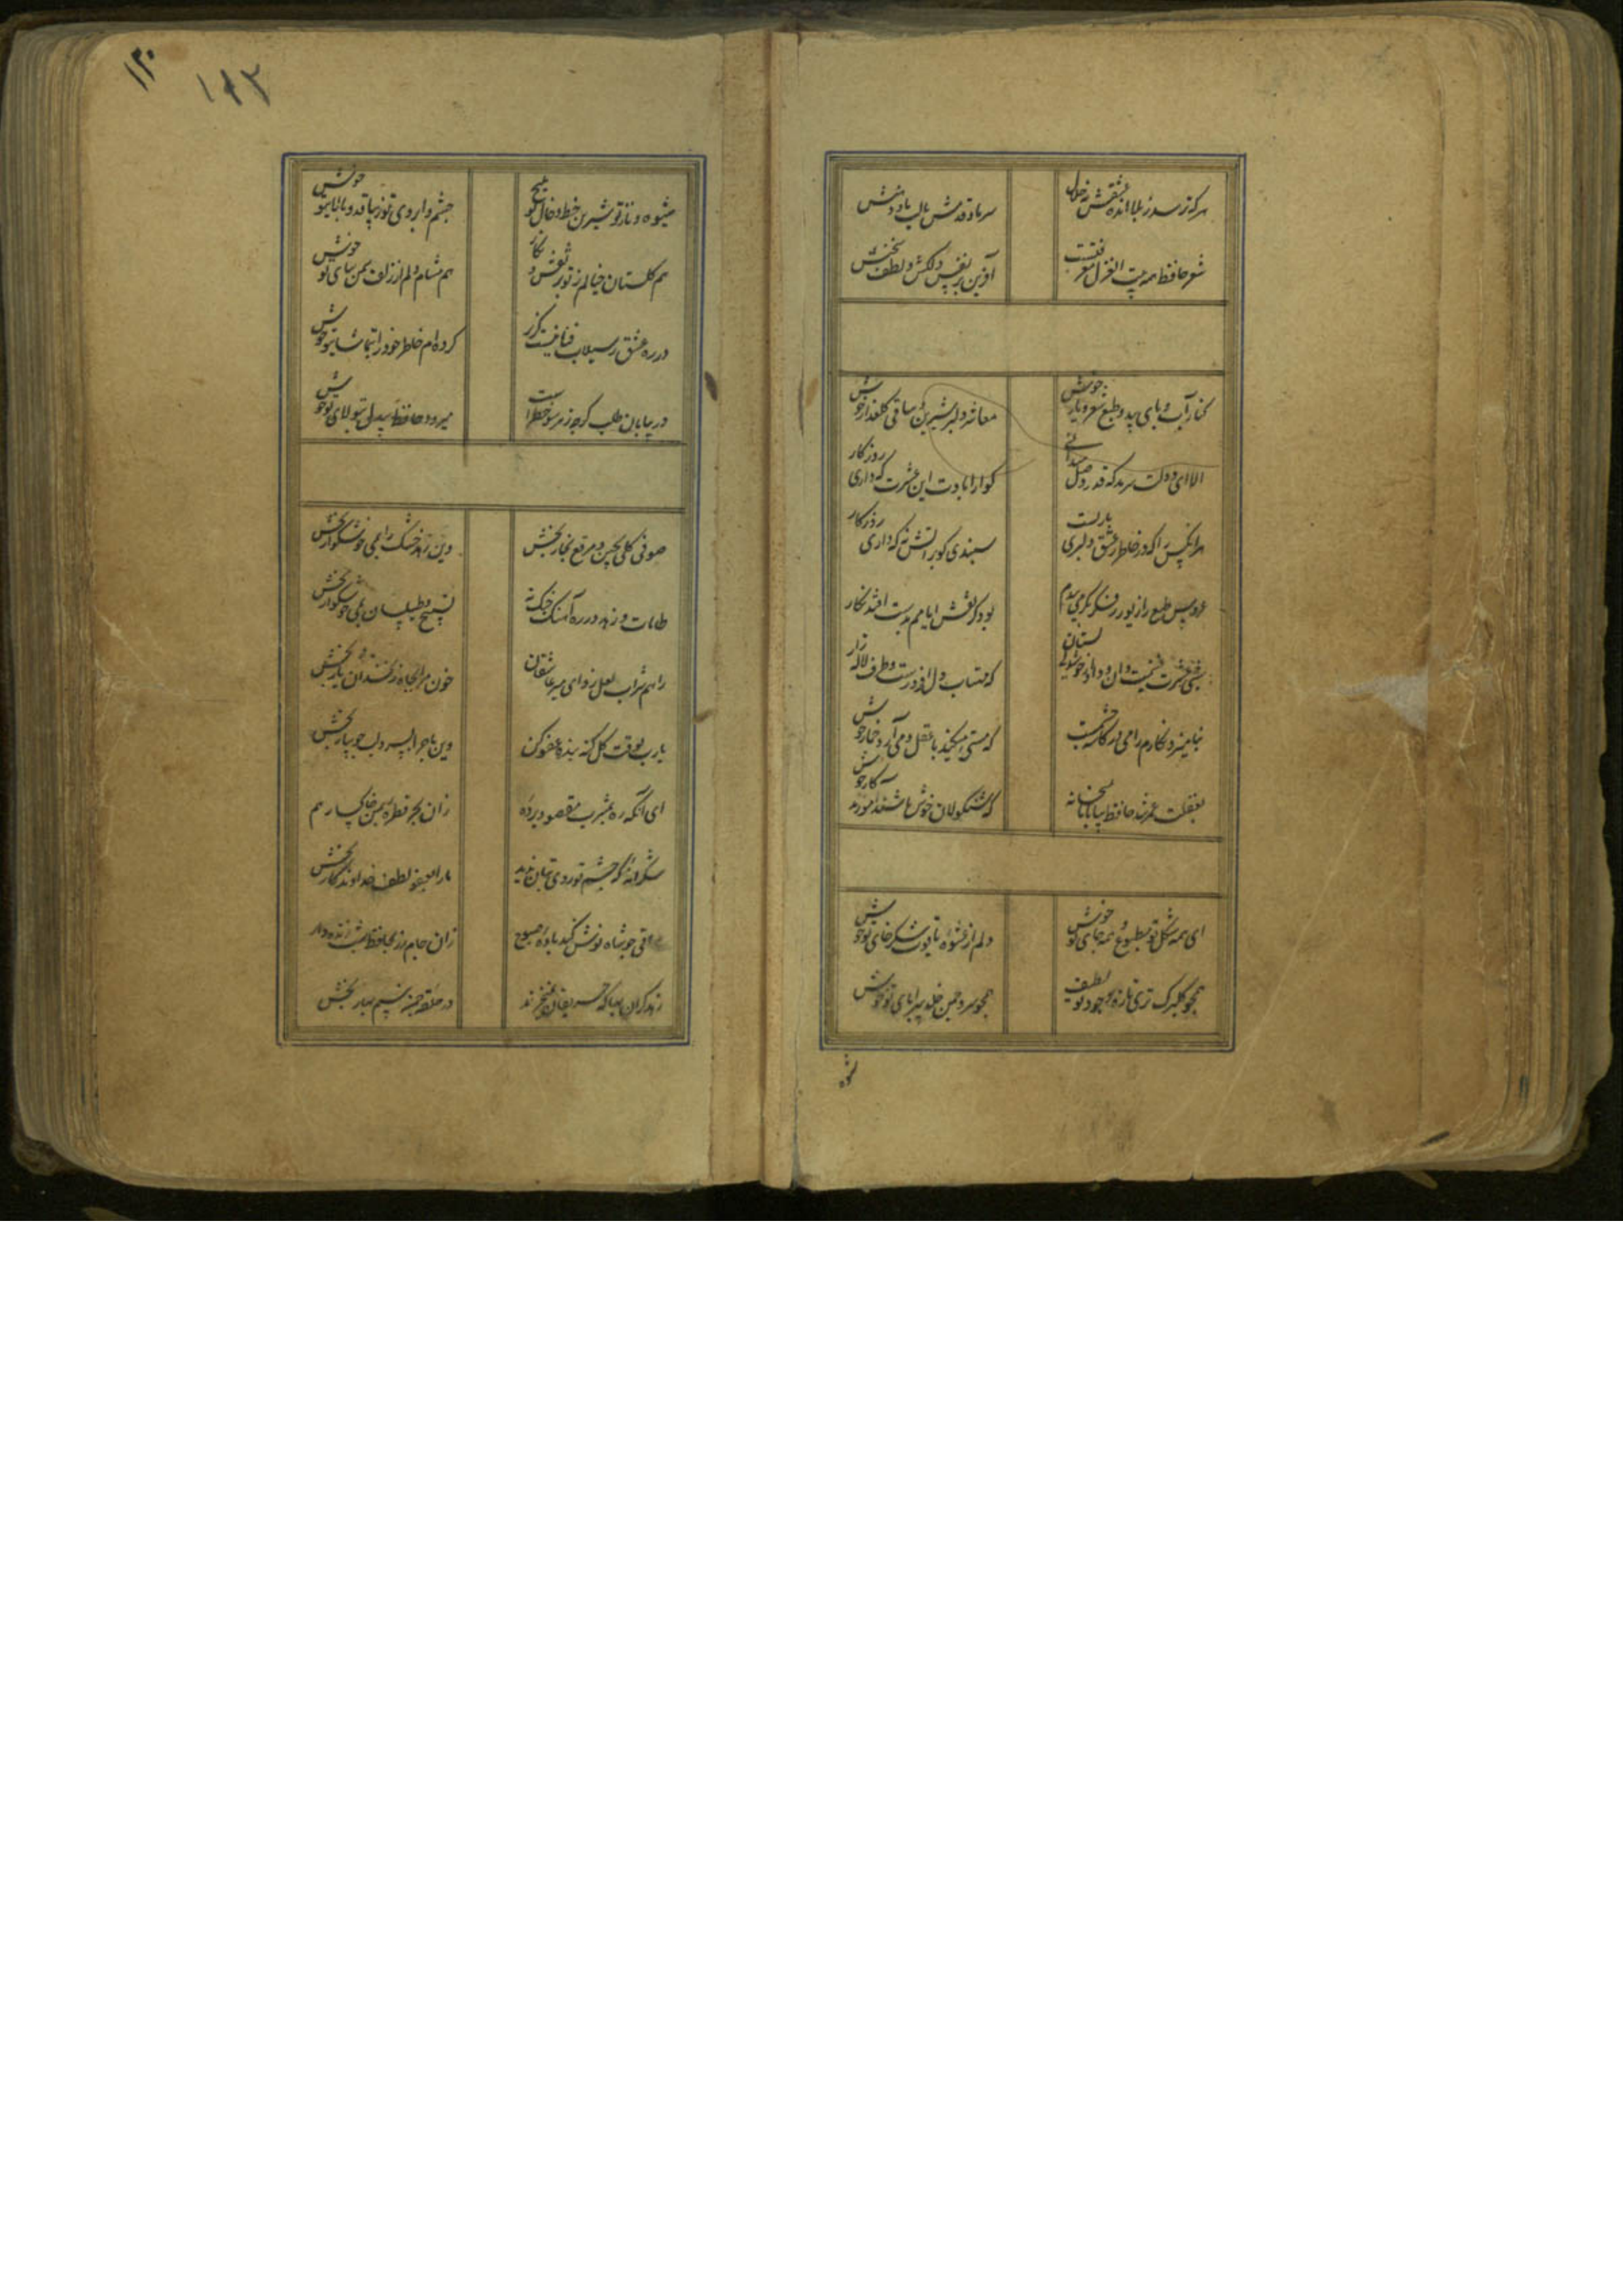 هر که ترسد ز بلا انده عشقش نه حلال
سر ما و قدمش یا لب ما و دهنش
شعر حافظ همه بیت الغزل معرفتست
آفرین بر نفس دلکش و لطف سخنش
کنار آب و پای بید و طبع شعر و یاری خوش
معاشر دلبر شیرین و ساقی گلعذار خوش
الا ای دولت سرمد که قدر وصل میدانی
گوارا بادت این عشرت که داری روزگار
هر آنکس را که در خاطر ز عشق دلبری باریست
سپندی گو بر آتش نه که داری روزگار
عروس طبع را زیور ز فکر بکر می بندم
بود کز نقش ایامم بدست افتد نگار
شب عشرت غنیمت دان و داد خوشدلی بستان
که مهتاب دل افروزست و طرف لاله زار
که مستی میکند با عقل و می آرد خمار خوش
بغفلت عمر شد حافظ بیا با ما بمیخانه
که شنگولان خوش باشند آموزند کار خوش
ای همه شکل تو مطبوع و همه جای تو خوش
دلم از عشوه یاقوت شکرخای تو خوش
همچو گلبرگ تری تازه وجود تو لطیف
همچو سرو چمن خلد سراپای تو خوش
شیوه
۱۳۰
شیوه و ناز تو شیرین خط و خال تو ملیح
چشم و ابروی تو زیبا قد و بالای تو خوش
هم گلستان خیالم ز تو پر نقش و نگار
هم مشام دلم از زلف سمن سای تو خوش
در ره عشق ز سیلاب فنا نیست گذر
کرده ام خاطر خود را بتماشای تو خوش
در بیابان طلب گرچه ز هر سو خطریست
میرود حافظ بیدل بتولای تو خوش
صوفی گلی بچین و مرقع بخار بخش
وین زهد خشک را بمی خوشگوار بخش
طامات و زهد در ره آهنگ چنگ نه
تسبیح و طیلسان بمی خوشگوار بخش
راهم شراب لعل زد ای میر عاشقان
خون مرا بچاه زنخدان یار بخش
یارب بوقت گل گنه بنده عفو کن
وین ماجرا بسرو لب جویبار بخش
ای آنکه ره بمشرب مقصود برده
زان بحر قطره بمن خاکسار هم
شکرانه که چشم تو روی بتان ندید
ما را بعفو و لطف خداوندگار بخش
ساقی چو شاه نوش کند باده صبوح
زان جام زر بحافظ شب زنده دار
در حلقه چمن بنسیم بهار بخش